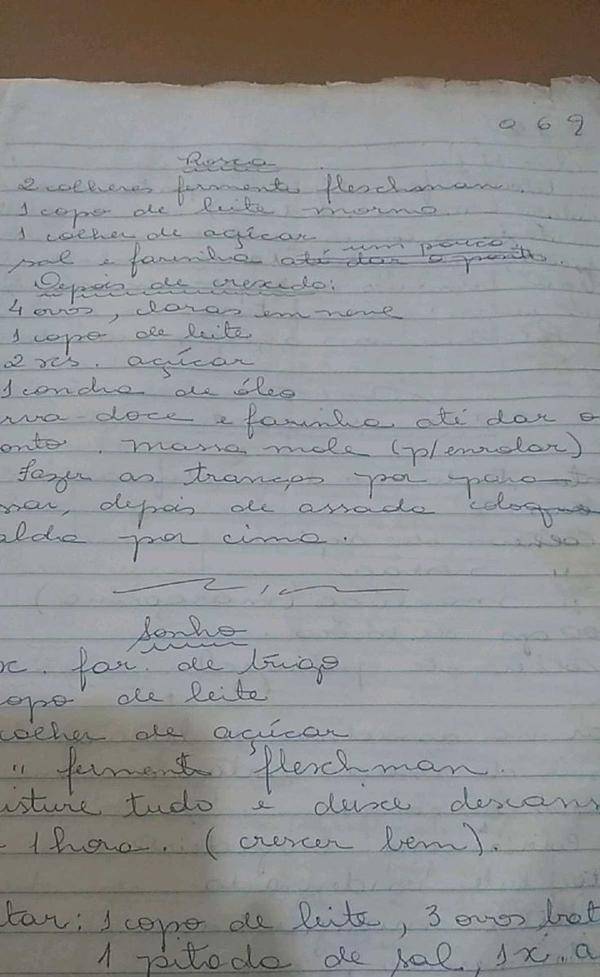 069
Rosca
2 colheres fermento fleschman.
1 copo de leite morno
1 colher de açúcar
um pouco
sal e farinha até dar o ponto.
Depois de crescido:
4 ovos, claras em neve
1 copo de leite
2 xs. açúcar
1 concha de óleo
rva-doce e farinha até dar o
onto. massa mole (p/enrolar)
Fazer as tranças por para
sar, depois de assada coloque
alda por cima.
Sonho
x. far. de trigo
copo de leite
colher de açúcar
" fermento fleschman.
isture tudo e deixe descans
1 hora. (crescer bem).
tar: 1 copo de leite, 3 ovos bat
1 pitada de sal, 1 x. a